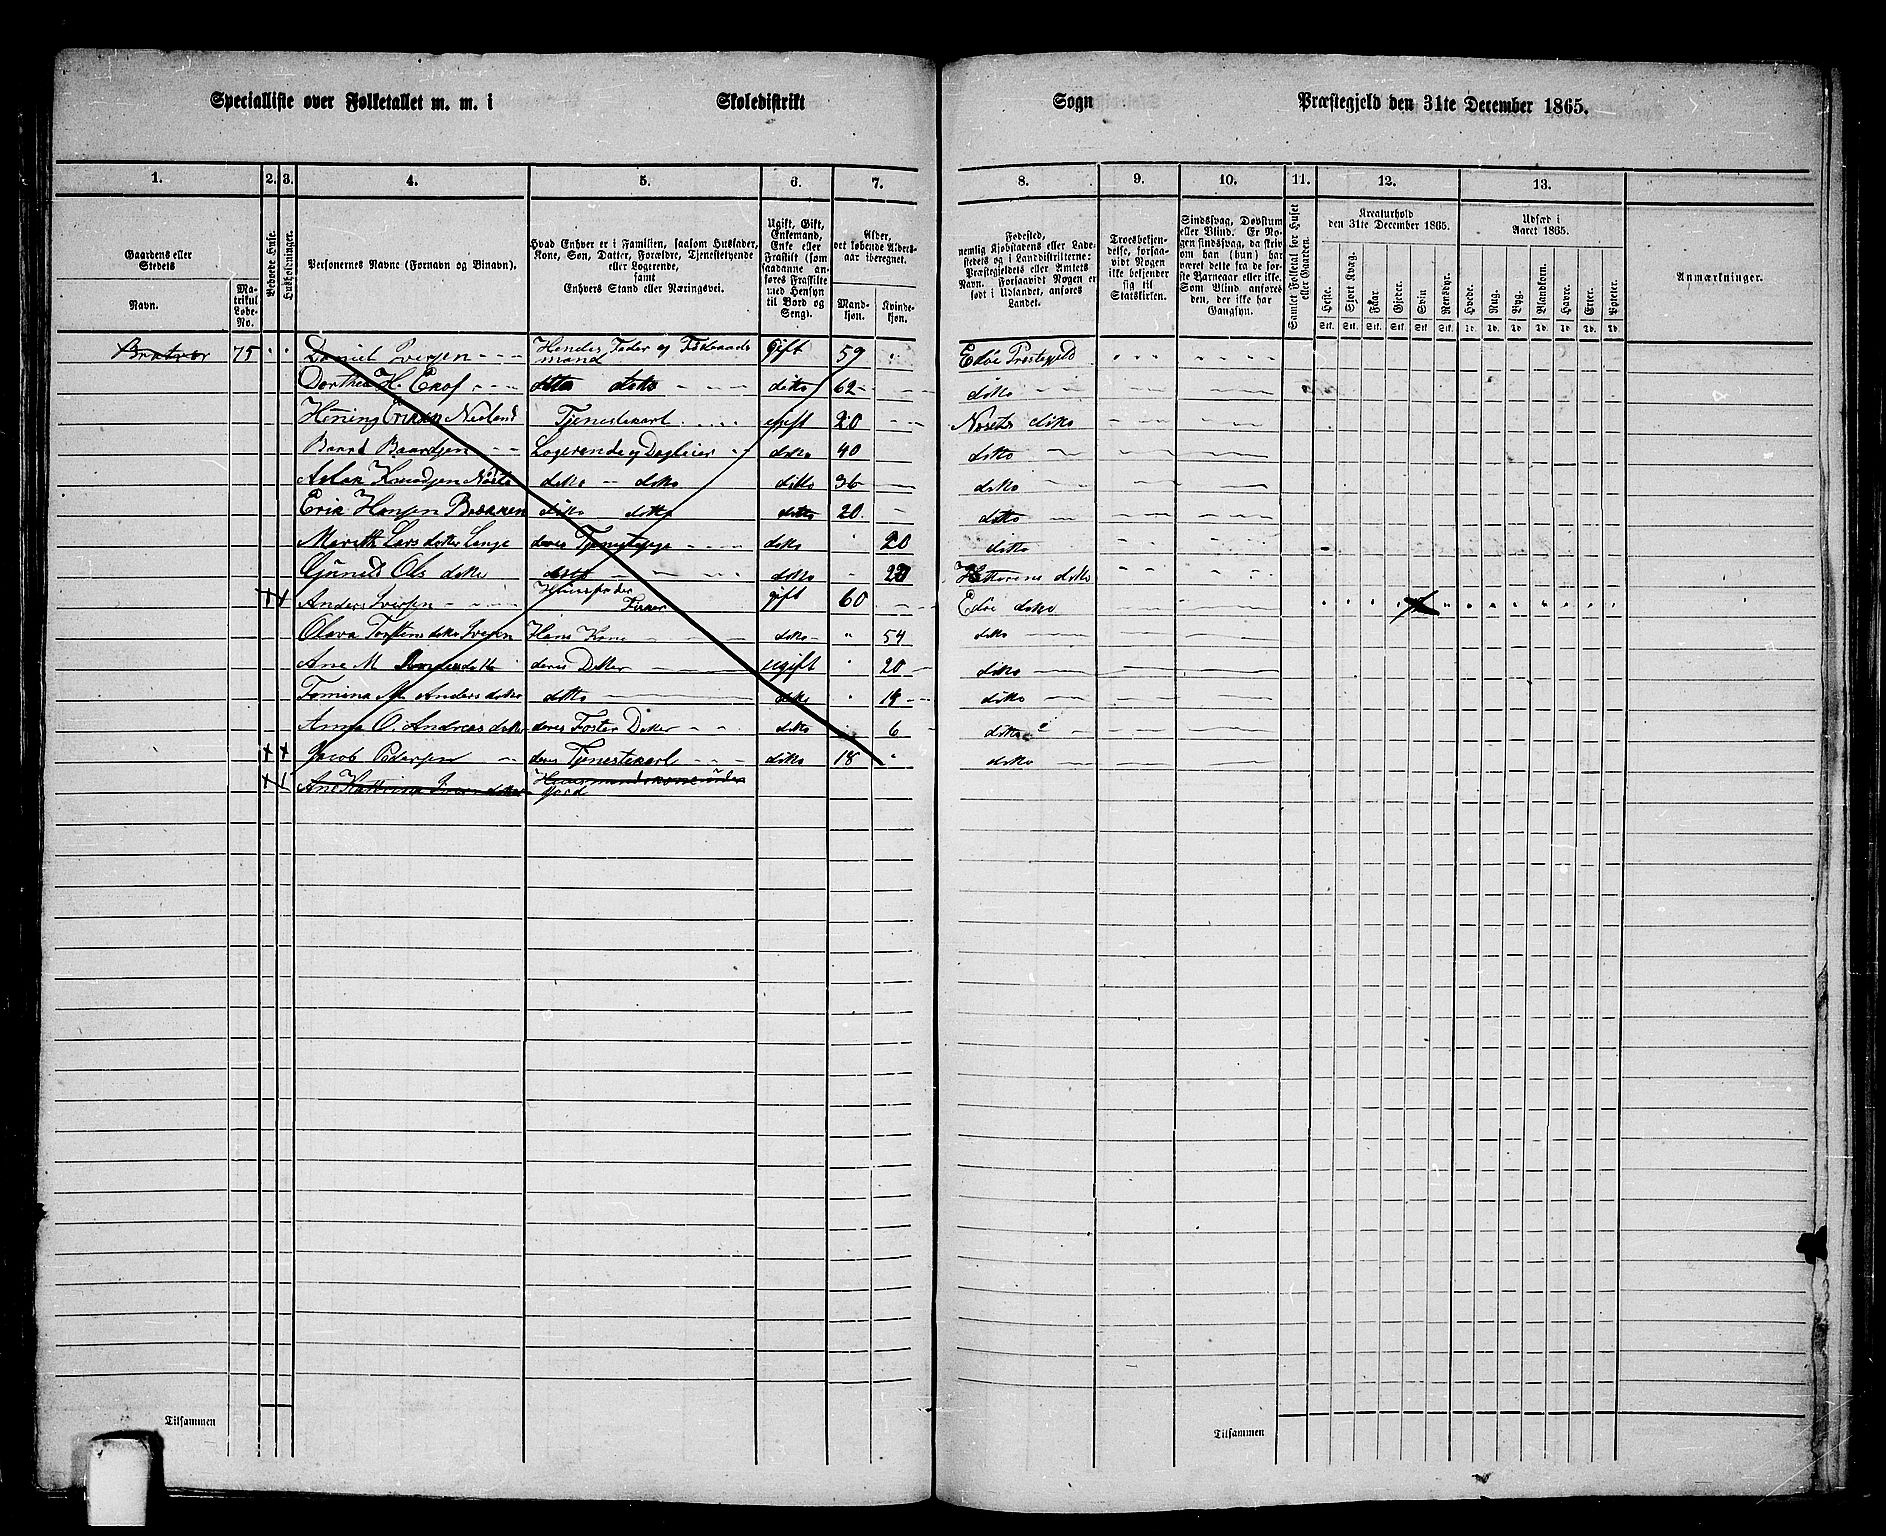 Specialliste over Folketallet m. m. i Skoledistrikt Sogn Præstegjeld den 31te December 1865.
1. 2. 3. 4. 5. 6. 7. 8. 9. 10. 11. 12. 13.
Gaardens eller Stedets
Navn.
Matrikul Løbe-No.
Beboede Huse.
Husholdninger.
Personernes Navne (Fornavn og Binavn).
Hvad Enhver er i Familien, saasom Husfader, Kone, Søn, Datter, Forældre, Tjenestetyende eller Logerende, samt Enhvers Stand eller Næringsvei.
Ugift, Gift, Enkemand, Enke eller Fraskilt (som saadanne anføres Fraskilte med Hensyn til Bord og Seng).
Alder, det løbende Alders-aar iberegnet.
Mandkjøn. Kvindekjøn.
Fødested, nemlig Kjøbstadens eller Ladestedets og i Landdistrikterne: Præstegjeldets eller Amtets Navn. Forsaavidt Nogen er født i Udlandet, anføres Landet.
Troesbekjendelse, forsaavidt Nogen ikke bekjender sig til Statskirken.
Sindssvag, Døvstum eller Blind. Er Nogen sindssvag, da skriv om han (hun) har været dette fra de første Barneaar eller ikke. Som Blind anføres den, der ikke har Gangsyn.
Samlet Folketal for Huset eller Gaarden.
Kreaturhold den 31te December 1865.
Heste. Stort Kvæg. Faar. Gjeder. Svin. Rensdyr.
Udsæd i Aaret 1865.
Hvede. Rug. Byg. Blandkorn. Havre. Erter. Poteter.
Anmærkninger.
Bratvær 75 Daniel Iversen Hendes Fader og Føderaadsmand Gift 59 Edøe Prestegjeld
Dorthea H. ditto ditto ditto 62 ditto
Tjenestekarl ugift 20 ditto
Baard Baardsen Logerende og Dagleier ditto 40 ditto
Aslak Knudsen ditto ditto ditto 36 ditto
Erik Hansen Bakken ditto ditto ditto 20 ditto
Mareth Lars datter deres Tjenestepige ditto 20 ditto
Ols datter ditto ditto 22 ditto
Anders Iversen Huusfader Fisker gift 60 Edøe ditto
Olava datter Iversen Hans Kone ditto 54 ditto
Ane M. Anders datter deres Datter ugift 20 ditto
Tomina M. Anders datter ditto ditto ditto
Anna O. Andreas datter deres Foster Datter ditto 6 ditto
Jacob Pedersen deres Tjenestekarl ditto 18 ditto
Ane Kattrina Iver datter Huusmandskone uden Jord
Tilsammen Tilsammen